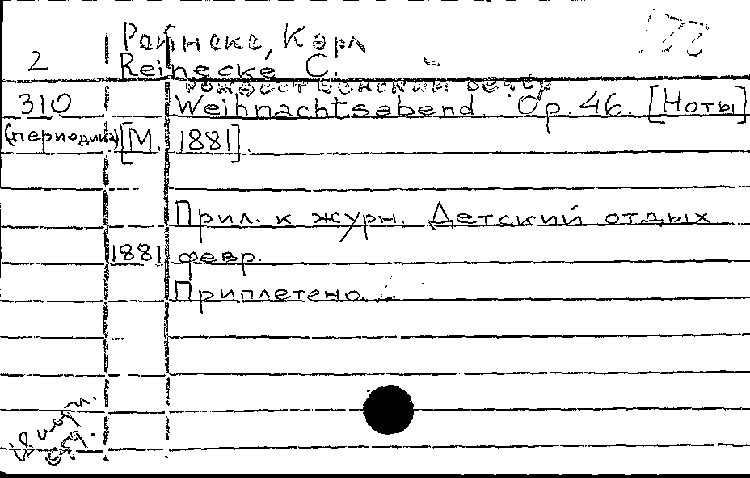 Райнеке, Карл
2 Reinecke C.
Рождественский вечер
310 Weihnachtsabend. Op. 46. [Ноты]
(периодика) [М. 1881].
Прил. к журн. Детский отдых
1881 февр.
Приплетено.